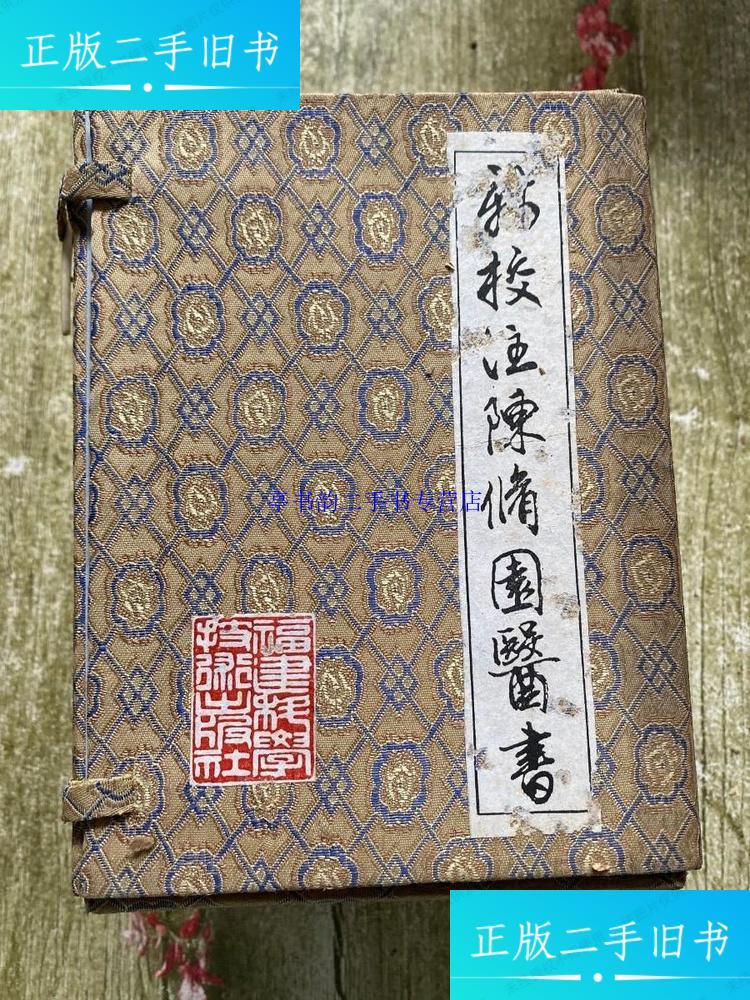 正版二手旧书
新校注陳脩園醫書
亭书韵二手书专营店
福建科學
技術出版社
正版二手旧书